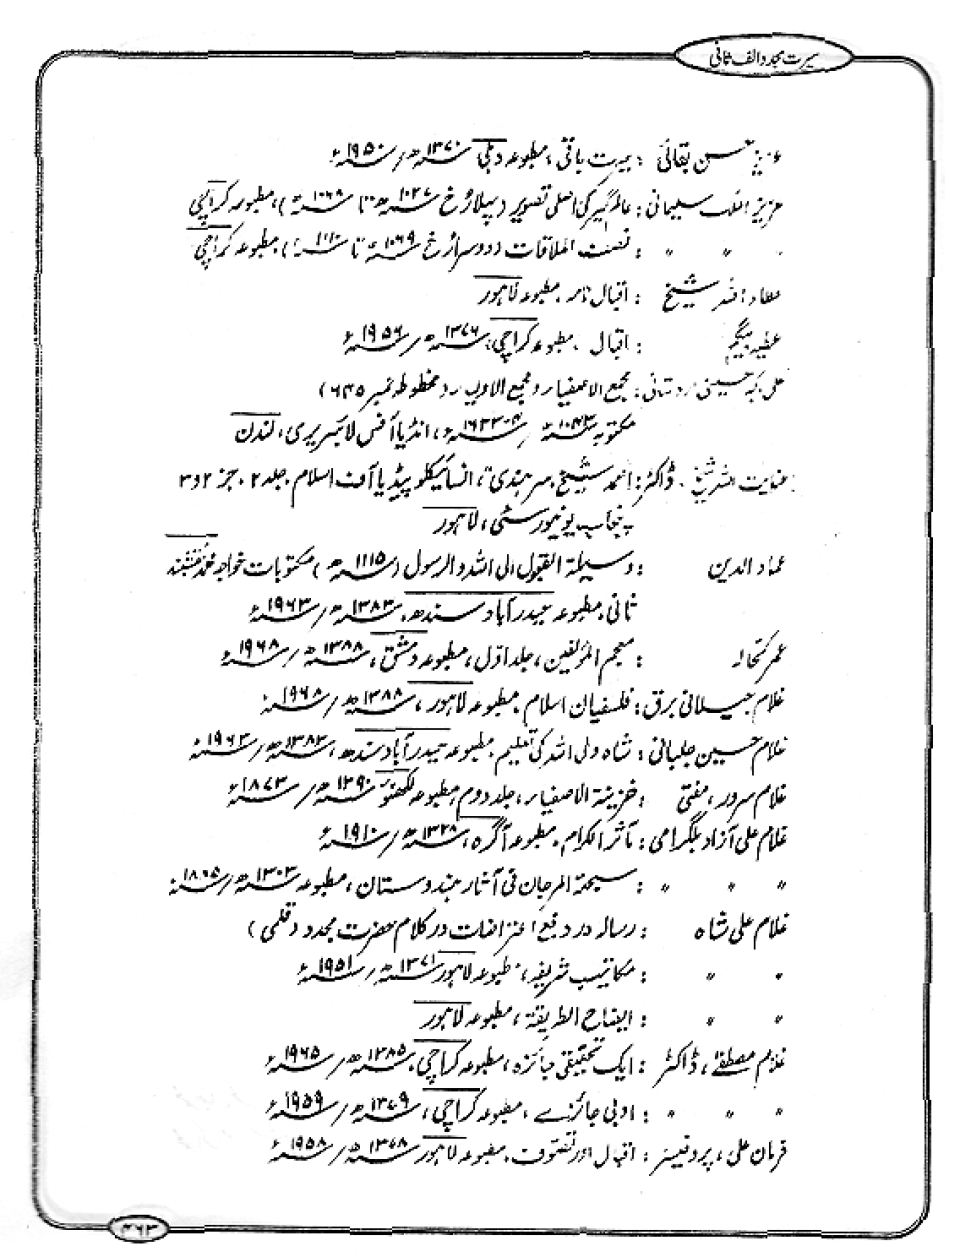 سیرت مجدد الف ثانی
عزیز حسن بقائی : سیرت باقی، مطبوعہ دہلی ۱۳۷۰ھ/۱۹۵۰ء
عزیز الملک سلیمانی : عالم گیر کی اصلی تصویر (پہلا رُخ ۱۰۲۷ھ تا ۱۰۶۸ھ)، مطبوعہ کراچی
〃 〃 〃 : نصف الملاقات (دوسرا رُخ ۱۰۶۹ھ تا ۱۱۱۰ھ) مطبوعہ کراچی
عطاء اللہ شیخ : اقبال نامہ مطبوعہ لاہور
عطیہ بیگم : اقبال، مطبوعہ کراچی، ۱۳۷۶ھ/۱۹۵۶ء
علی اکبر حسینی اردستانی : مجمع الاصفیاء و مجمع الاولیاء (مخطوطہ نمبر ۶۴۵)
مکتوبہ ۱۰۴۳ھ/۴-۱۶۳۳ء، انڈیا آفس لائبریری، لندن
عنایت اللہ شیخ، ڈاکٹر : احمد شیخ سرہندی، انسائیکلوپیڈیا آف اسلام، جلد ۲، جز ۲ و ۳
پنجاب یونیورسٹی، لاہور
عماد الدین : وسیلۃ القبول الی اللہ والرسول (۱۱۱۵ھ) مکتوبات خواجہ محمد نقشبند
ثانی، مطبوعہ حیدرآباد سندھ، ۱۳۸۳ھ/۱۹۶۳ء
عمر کحالہ : معجم المؤلفین، جلد اوّل، مطبوعہ دمشق، ۱۳۸۸ھ/۱۹۶۸ء
غلام جیلانی برق : فلسفیان اسلام، مطبوعہ لاہور، ۱۳۸۸ھ/۱۹۶۸ء
غلام حسین جلبانی : شاہ ولی اللہ کی تعلیم، مطبوعہ حیدرآباد سندھ، ۱۳۸۳ھ/۱۹۶۳ء
غلام سرور، مفتی : خزینۃ الاصفیاء، جلد دوم، مطبوعہ لکھنؤ ۱۲۹۰ھ/۱۸۷۳ء
غلام علی آزاد بلگرامی : مآثر الکرام، مطبوعہ آگرہ، ۱۳۲۸ھ/۱۹۱۰ء
〃 〃 〃 : سبحۃ المرجان فی آثار ہندوستان، مطبوعہ ۱۳۰۳ھ/۱۸۸۵ء
غلام علی شاہ : رسالہ در دفع اعتراضات در کلام حضرت مجدد (قلمی)
〃 〃 : مکاتیب شریفہ، مطبوعہ لاہور ۱۳۷۱ھ/۱۹۵۱ء
〃 〃 : ایضاح الطریقۃ، مطبوعہ لاہور
غلام مصطفےٰ، ڈاکٹر : ایک تحقیقی جائزہ، مطبوعہ کراچی، ۱۳۸۵ھ/۱۹۶۵ء
〃 〃 〃 : ادبی جائزے، مطبوعہ کراچی، ۱۳۷۹ھ/۱۹۵۹ء
فرمان علی، پروفیسر : اقبال اور تصوف، مطبوعہ لاہور ۱۳۷۸ھ/۱۹۵۸ء
۴۶۳